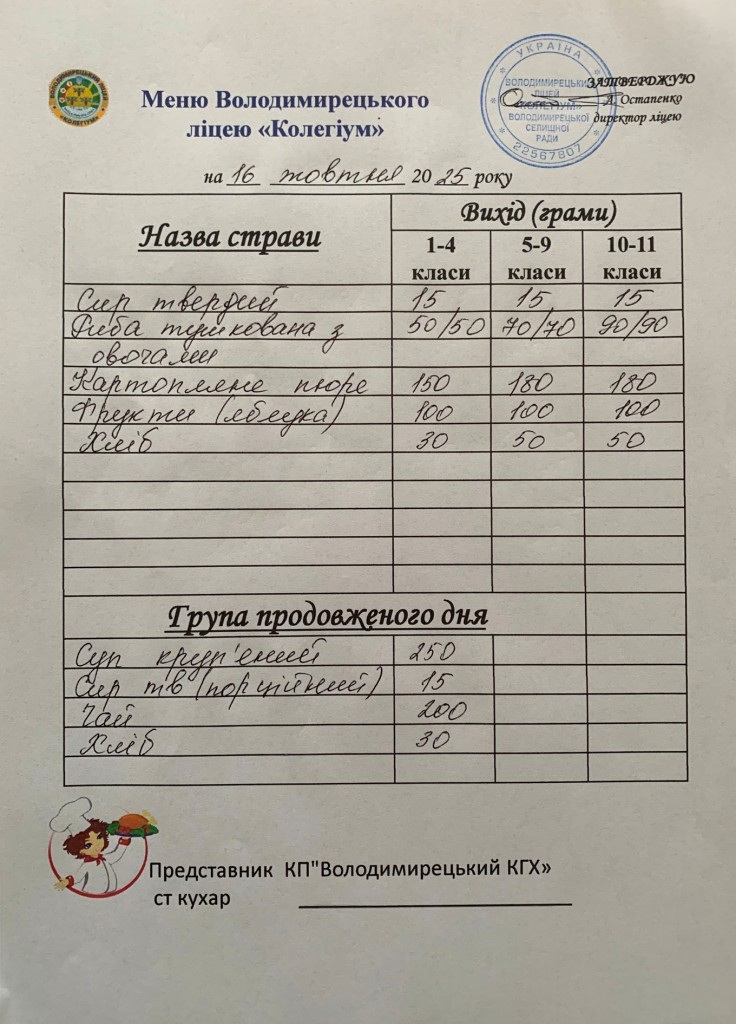 Меню Володимирецького
ліцею «Колегіум»
УКРАЇНА
ВОЛОДИМИРЕЦЬКИЙ
ЛІЦЕЙ
«КОЛЕГІУМ»
ВОЛОДИМИРЕЦЬКОЇ
СЕЛИЩНОЇ
РАДИ
22567807
ЗАТВЕРДЖУЮ
А. Остапенко
директор ліцею
на 16 жовтня 2025 року
Назва страви Вихід (грами)
1-4 класи 5-9 класи 10-11 класи
Сир твердий 15 15 15
Риба тушкована з 50/50 70/70 90/90
овочами
Картопляне пюре 150 180 180
Фрукти (яблука) 100 100 100
Хліб 30 50 50
Група продовженого дня
Суп круп'яний 250
Сир тв (порційний) 15
Чай 200
Хліб 30
Представник КП"Володимирецький КГХ»
ст кухар